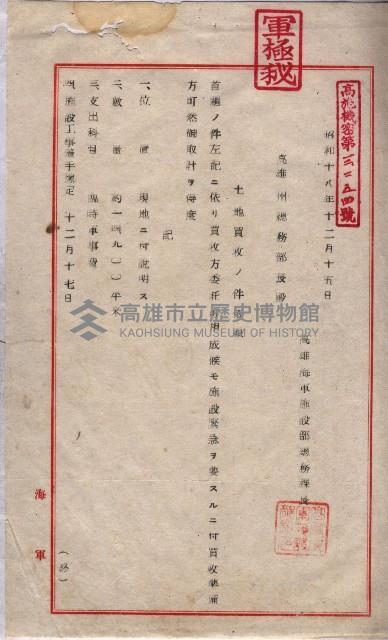 軍極秘
高施機密第一三二五四號
昭和十八年十二月十五日
高雄海軍施設部總務課長
高雄州總務部長殿
土地買收ノ件
首題ノ件左記ニ依リ買收方委任
成候モ施設緊急ヲ要スルニ付買收
方可然御取計ヲ得度
記
一、位置 現地ニ付說明ス
二、數量 約一四九〇〇平米
三、支出科目 臨時軍事費
四、施設工事著手豫定 十二月十七日
(終)
海軍
高雄市立歷史博物館
KAOHSIUNG MUSEUM OF HISTORY